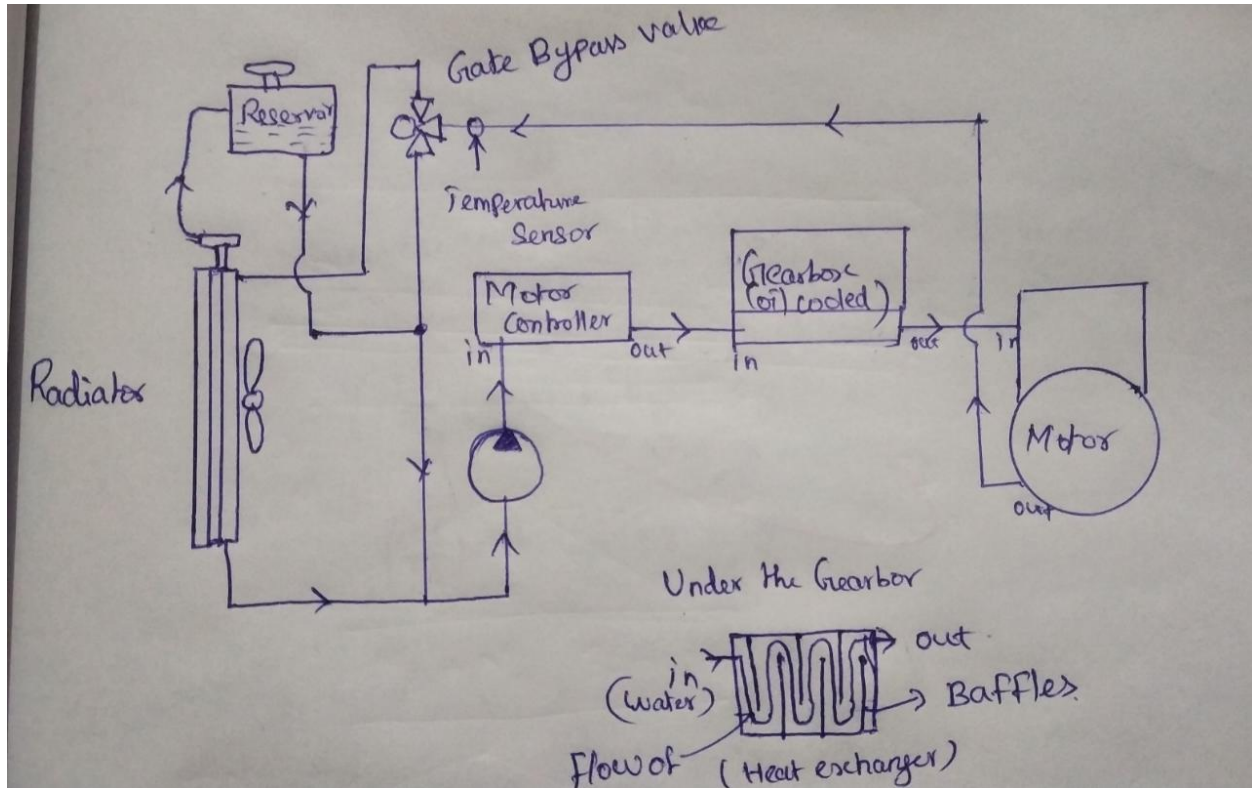 Gate Bypass valve
Reservor
Temperature
Sensor
Motor
Controller
in
out
Gearbox
(oil cooled)
in
out
in
Motor
out
Radiator
Under the Gearbox
in
(water)
out
Baffles
Flow of
(Heat exchanger)